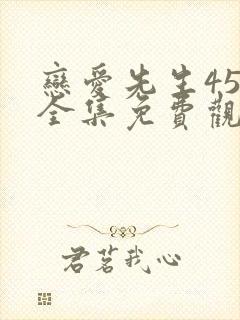 戀愛先生45
全集免費觀
君茗我心